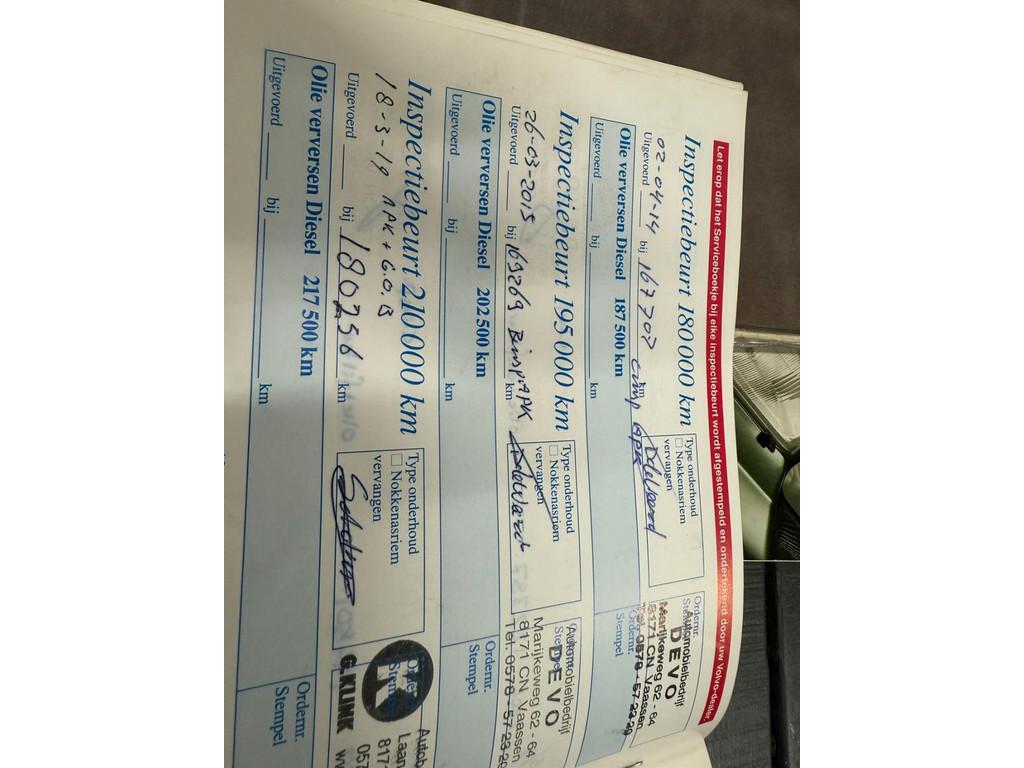 Let erop dat het Serviceboekje bij elke inspectiebeurt wordt afgestempeld en ondertekend door uw Volvo-dealer.
Inspectiebeurt 180 000 km
02-04-14
Uitgevoerd bij 167707 km
Type onderhoud
Nokkenasriem
vervangen
Ordernr.
Stempel
Automobielbedrijf
DEVO
Marijkeweg 62 - 64
8171 CN Vaassen
Tel. 0578 - 57 23 29
Olie verversen Diesel 187 500 km
Uitgevoerd bij km
Ordernr.
Stempel
Inspectiebeurt 195 000 km
26-03-2015
Uitgevoerd bij 169269 km APK
Type onderhoud
Nokkenasriem
vervangen
Automobielbedrijf
DEVO
Marijkeweg 62 - 64
8171 CN Vaassen
Tel. 0578 - 57 23 29
Olie verversen Diesel 202 500 km
Uitgevoerd bij km
Ordernr.
Stempel
Inspectiebeurt 210 000 km
18-3-19 APK + G.O.B
Uitgevoerd bij 180256 km
Type onderhoud
Nokkenasriem
vervangen
Autob
Laan
817
057
G.KLINK
Olie verversen Diesel 217 500 km
Uitgevoerd bij km
Ordernr.
Stempel